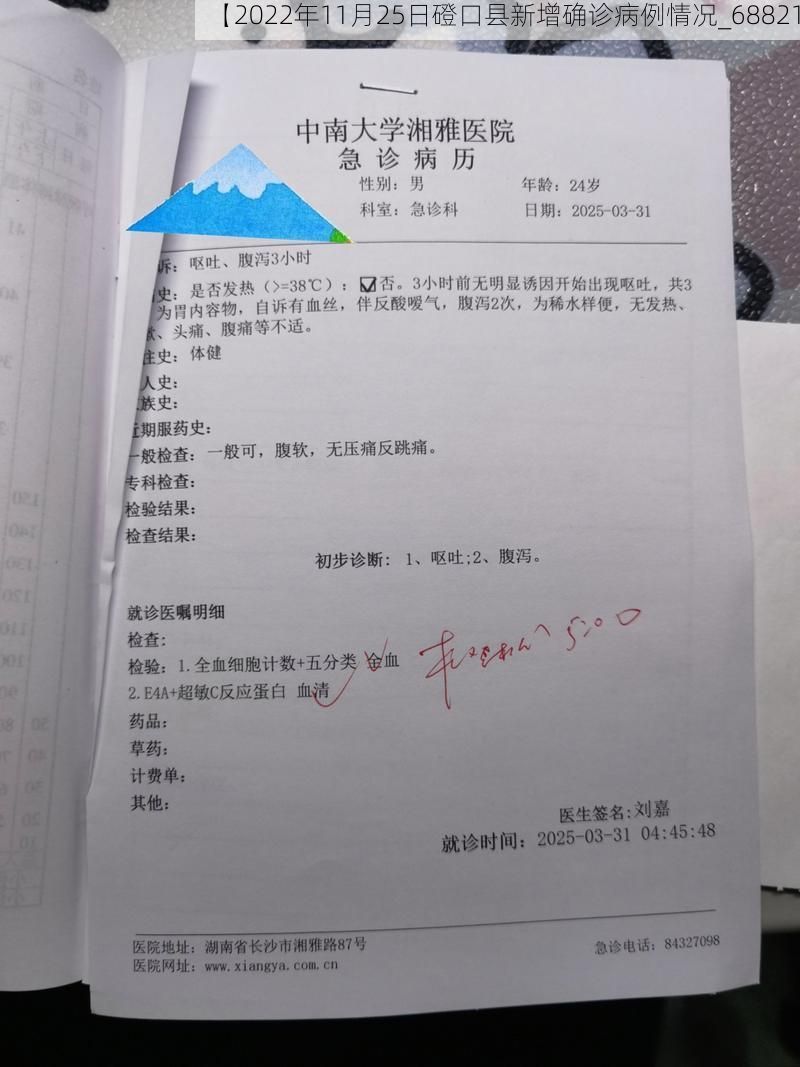 【2022年11月25日磴口县新增确诊病例情况_68821
中南大学湘雅医院
急诊病历
性别：男 年龄：24岁
科室：急诊科 日期：2025-03-31
诉：呕吐、腹泻3小时
史：是否发热（>=38℃）：☑否。3小时前无明显诱因开始出现呕吐，共3
为胃内容物，自诉有血丝，伴反酸嗳气，腹泻2次，为稀水样便，无发热、
、头痛、腹痛等不适。
往史：体健
人史：
族史：
近期服药史：
一般检查：一般可，腹软，无压痛反跳痛。
专科检查：
检验结果：
检查结果：
初步诊断：1、呕吐;2、腹泻。
就诊医嘱明细
检查：
检验：1.全血细胞计数+五分类 全血
2.E4A+超敏C反应蛋白 血清
5:00
药品：
草药：
计费单：
其他：
医生签名:刘嘉
就诊时间：2025-03-31 04:45:48
医院地址：湖南省长沙市湘雅路87号 急诊电话：84327098
医院网址：www.xiangya.com.cn